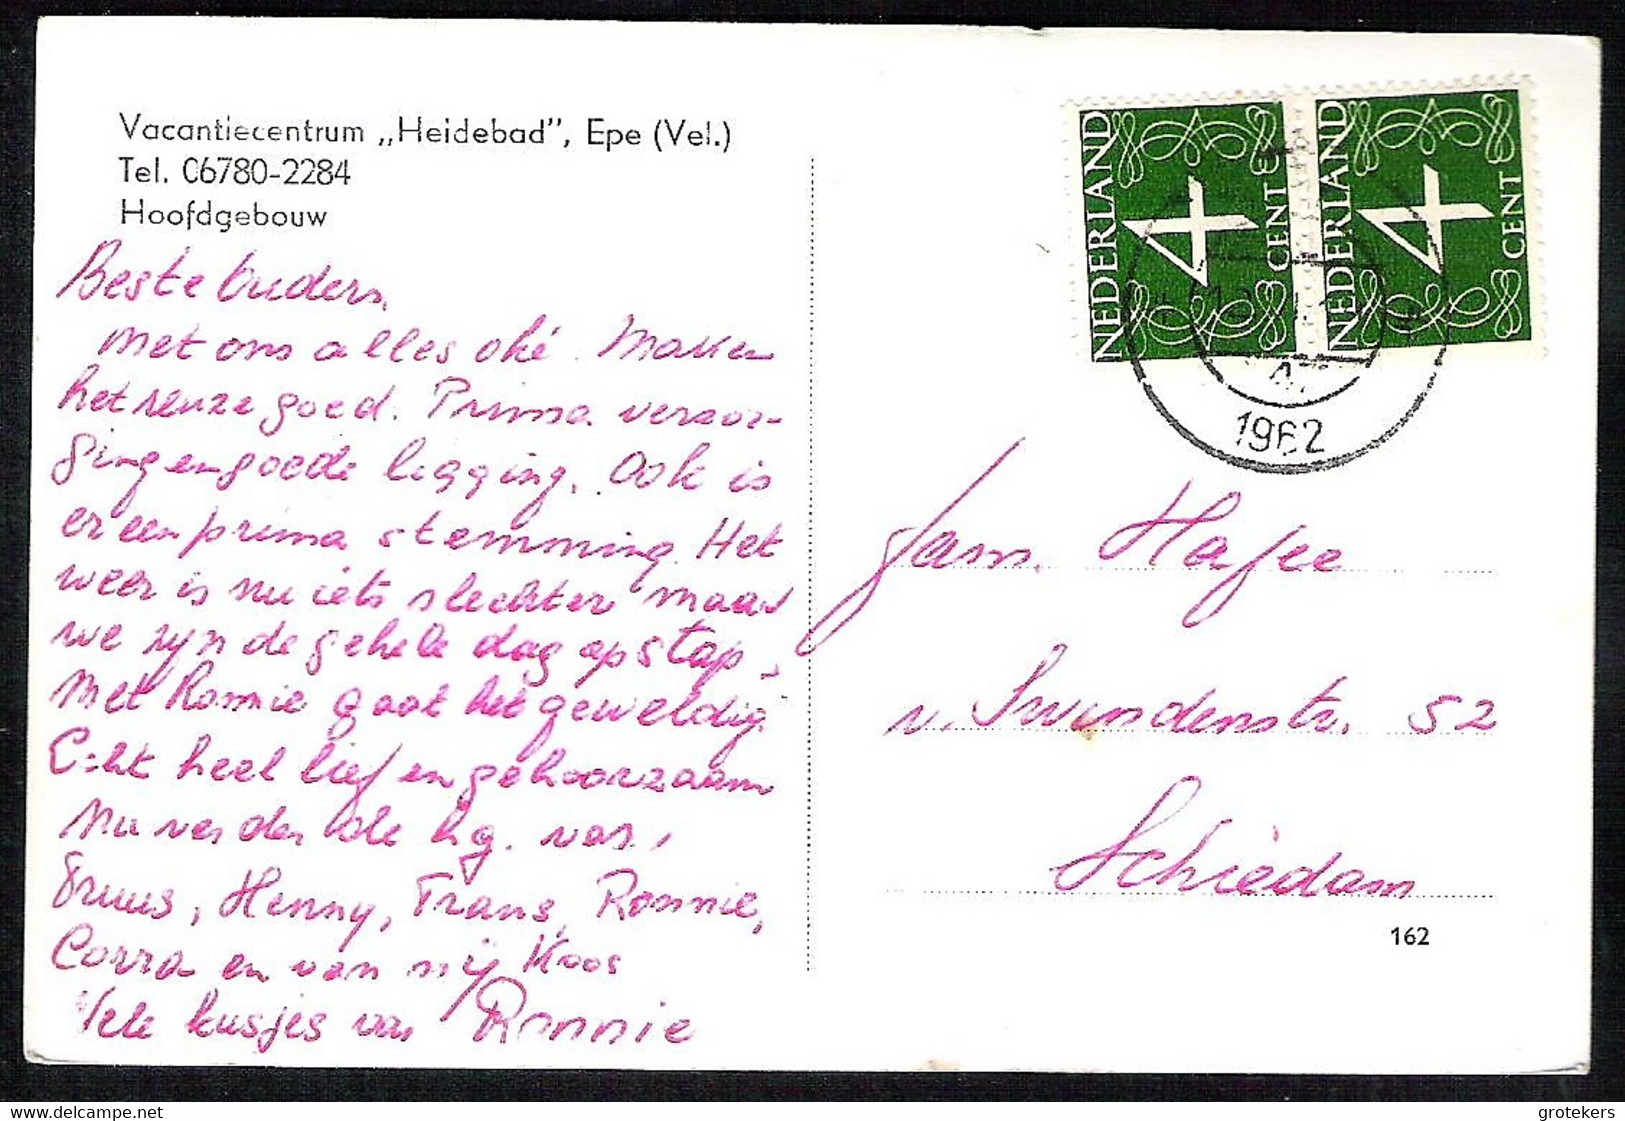 Vacantiecentrum „Heidebad", Epe (Vel.)
Tel. 06780-2284
Hoofdgebouw
Beste Ouders,
Met ons alles oké. Maken
het reuze goed. Prima verzor-
ging en goede ligging. Ook is
er een prima stemming. Het
weer is nu iets slechter maar
we zijn de gehele dag op stap.
Met Ronnie gaat het geweldig.
Echt heel lief en gehoorzaam
Nu verder de hg. van,
Truus, Henny, Frans, Ronnie,
Corra en van mij Koos
Vele kusjes van Ronnie
NEDERLAND
4
CENT
NEDERLAND
4
CENT
1962
Fam. Hafee
v. Swindenstr. 52
Schiedam
162
http://www.delcampe.net
grotekers